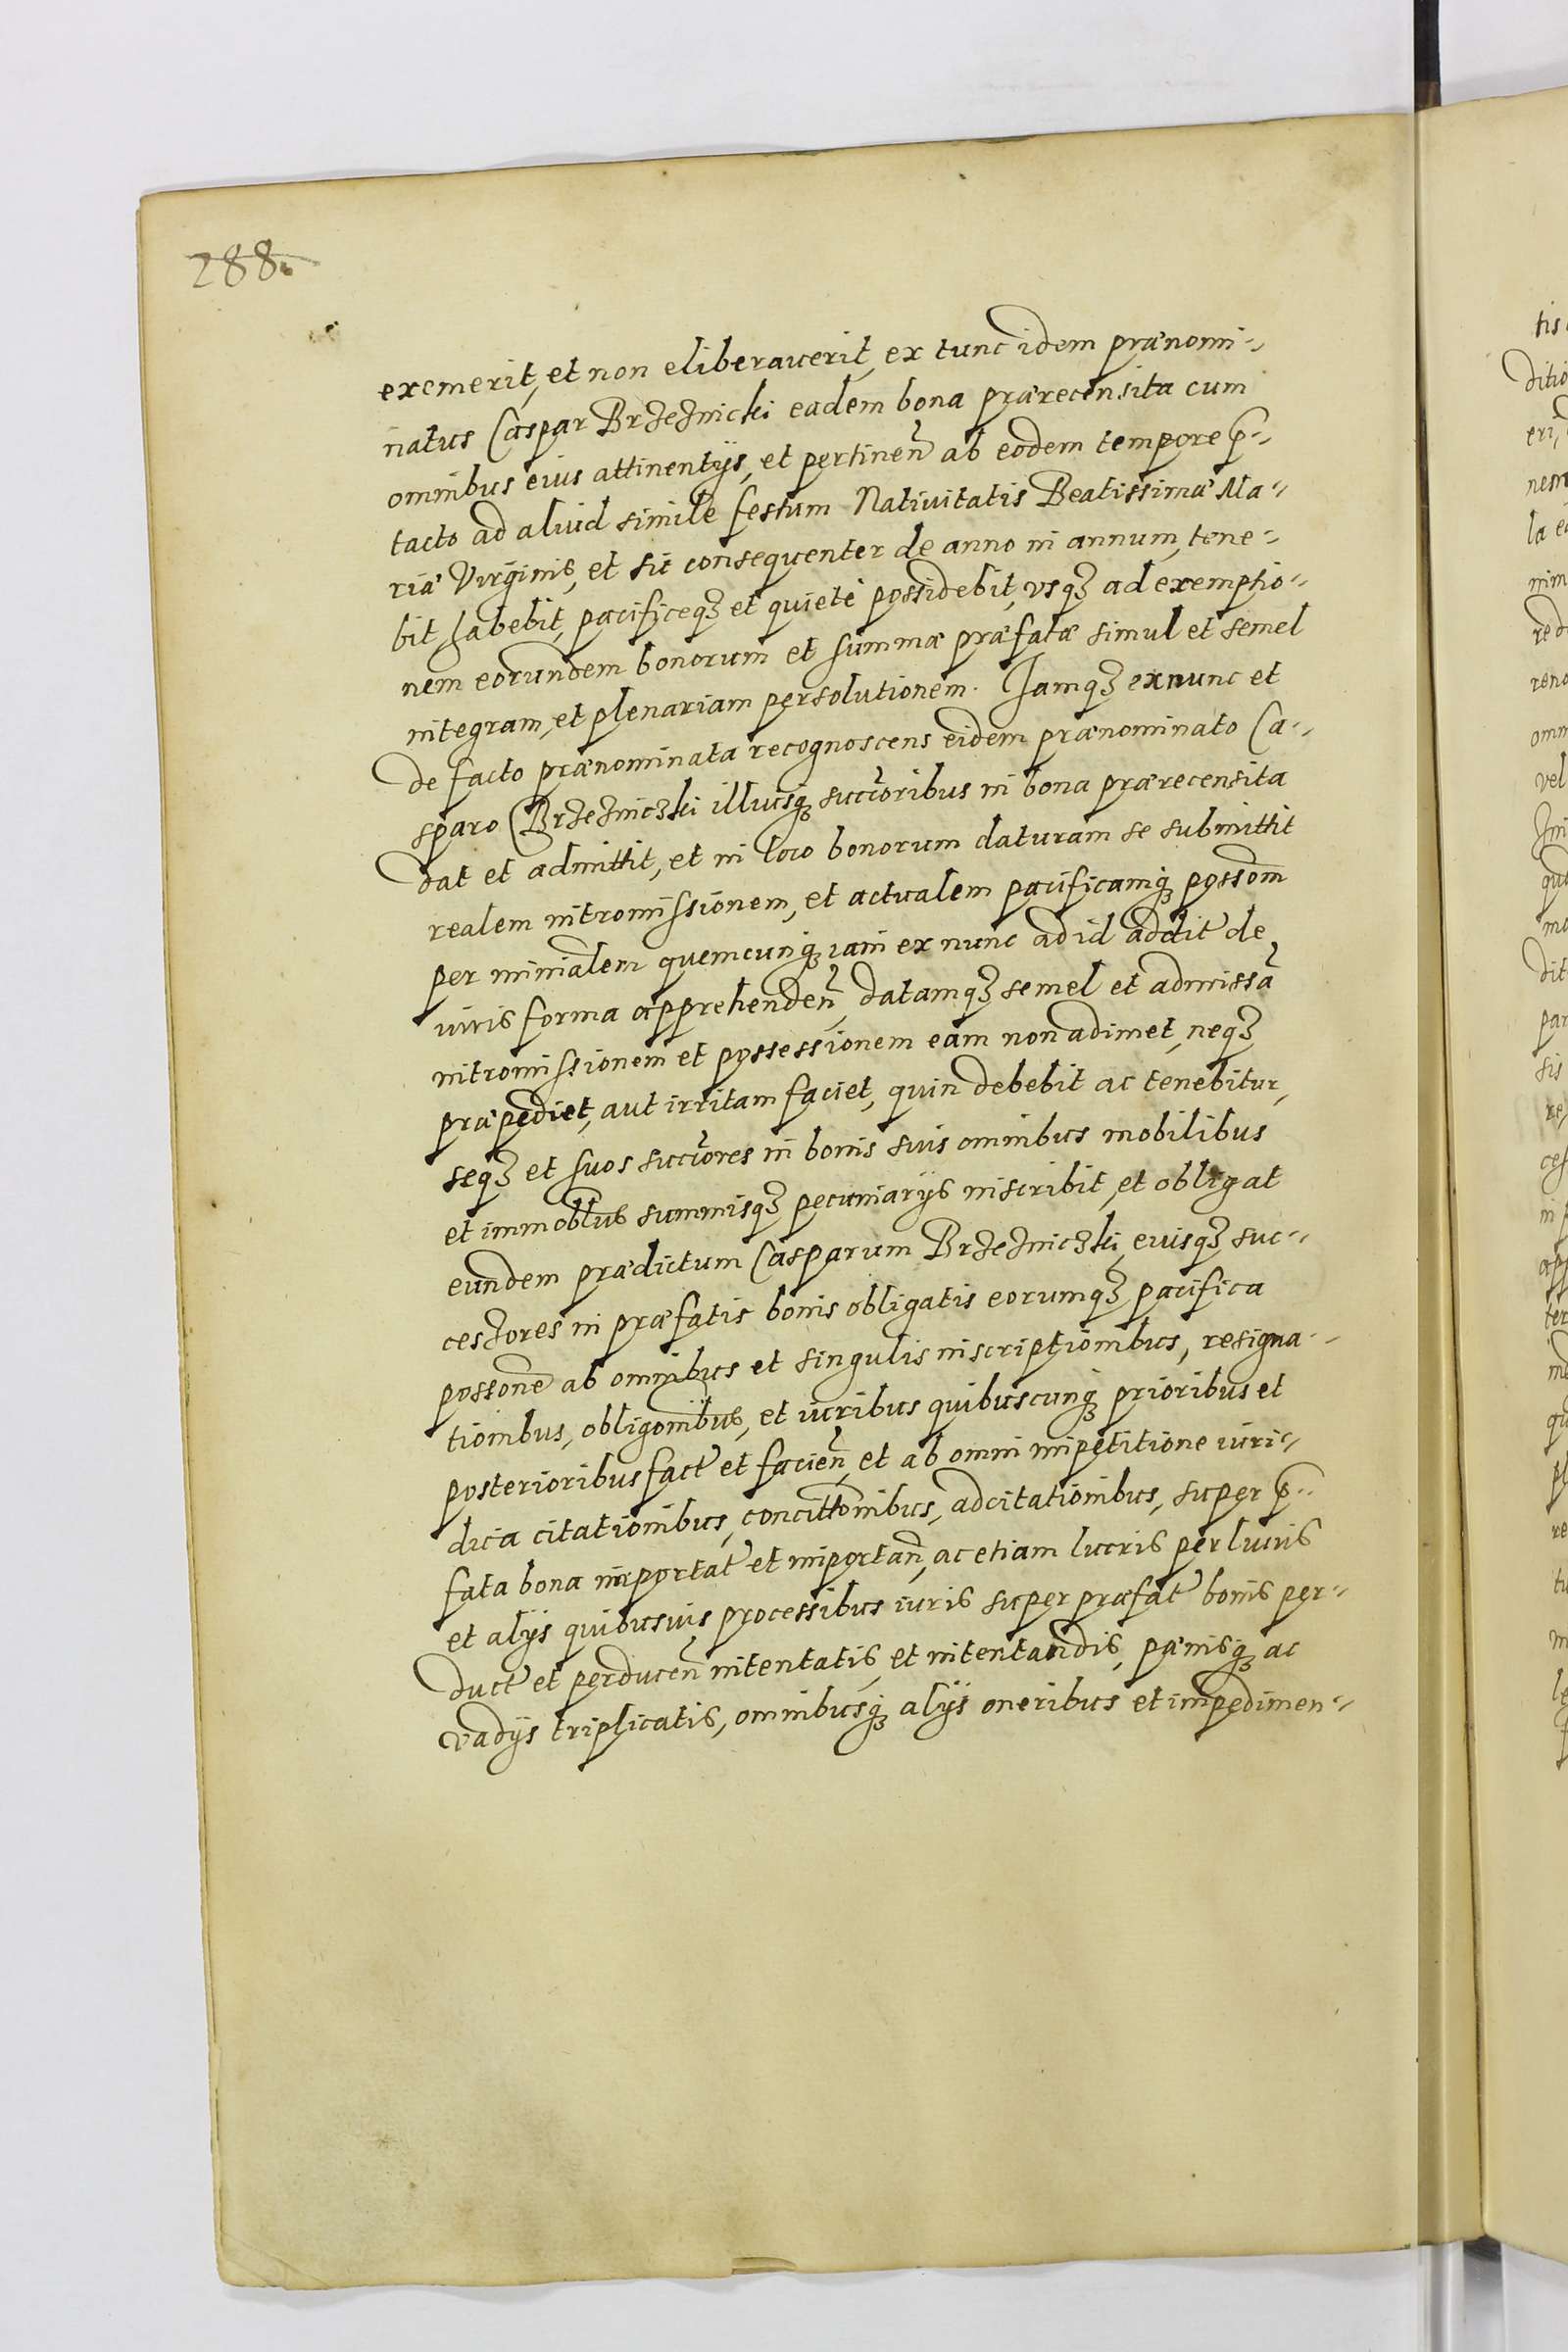 288.
exemerit, et non eliberauerit, ex tunc idem prænomi-
natus Caspar Brzeznicki eadem bona prærecensita cum
omnibus eius attinentÿs, et pertineñ ab eodem tempore p̃-
tacto ad aliud simile festum Natiuitatis Beatissimæ Ma-
riæ Virginis, et sic consequenter de anno in annum, tene-
bit habebit, pacificeqȝ et quietè possidebit, vsqȝ ad exemptio-
nem eorundem bonorum et summæ præfatæ simul et semel
integram, et plenariam persolutionem. Jamqȝ exnunc et
de facto prænominata recognoscens eidem prænominato Ca-
sparo Brzezniczki illiusqȝ succõribus in bona prærecensita
dat et admittit, et in loco bonorum daturam se submittit
realem intromissionem, et actualem pacificamqȝ possom̃
per minĩalem quemcunqȝ iam ex nunc ad id addit̃ de
iuris forma apprehendeñ, datamqȝ semel et admissã
intromissionem et possessionem eam non adimet, neqȝ
præpediet, aut irritam faciet, quin debebit ac tenebitur,
seqȝ et suos succõres in bonis suis omnibus mobilibus
et immobl̃ibus summisqȝ pecuniarÿs inscribit, et obligat
eundem prædictum Casparum Brzezniczki, eiusqȝ suc-
cessores in præfatis bonis obligatis eorumqȝ pacifica
possone ab omnibus et singulis inscriptionibus, resigna-
tionibus, obligonibus, et iuribus quibuscunqȝ prioribus et
posterioribus fact̃ et facieñ, et ab omni impetitione iuri-
dica citationibus, concittonibus, adcitationibus, super p̃-
fata bona importat̃ et importañ, ac etiam lucris perlucris
et alÿs quibusuis processibus iuris super præfat̃ bonis per-
duct̃ et perduceñ intentatis, et intentandis, pænisqȝ ac
vadÿs triplicatis, omnibusqȝ alÿs oneribus et impedimen-